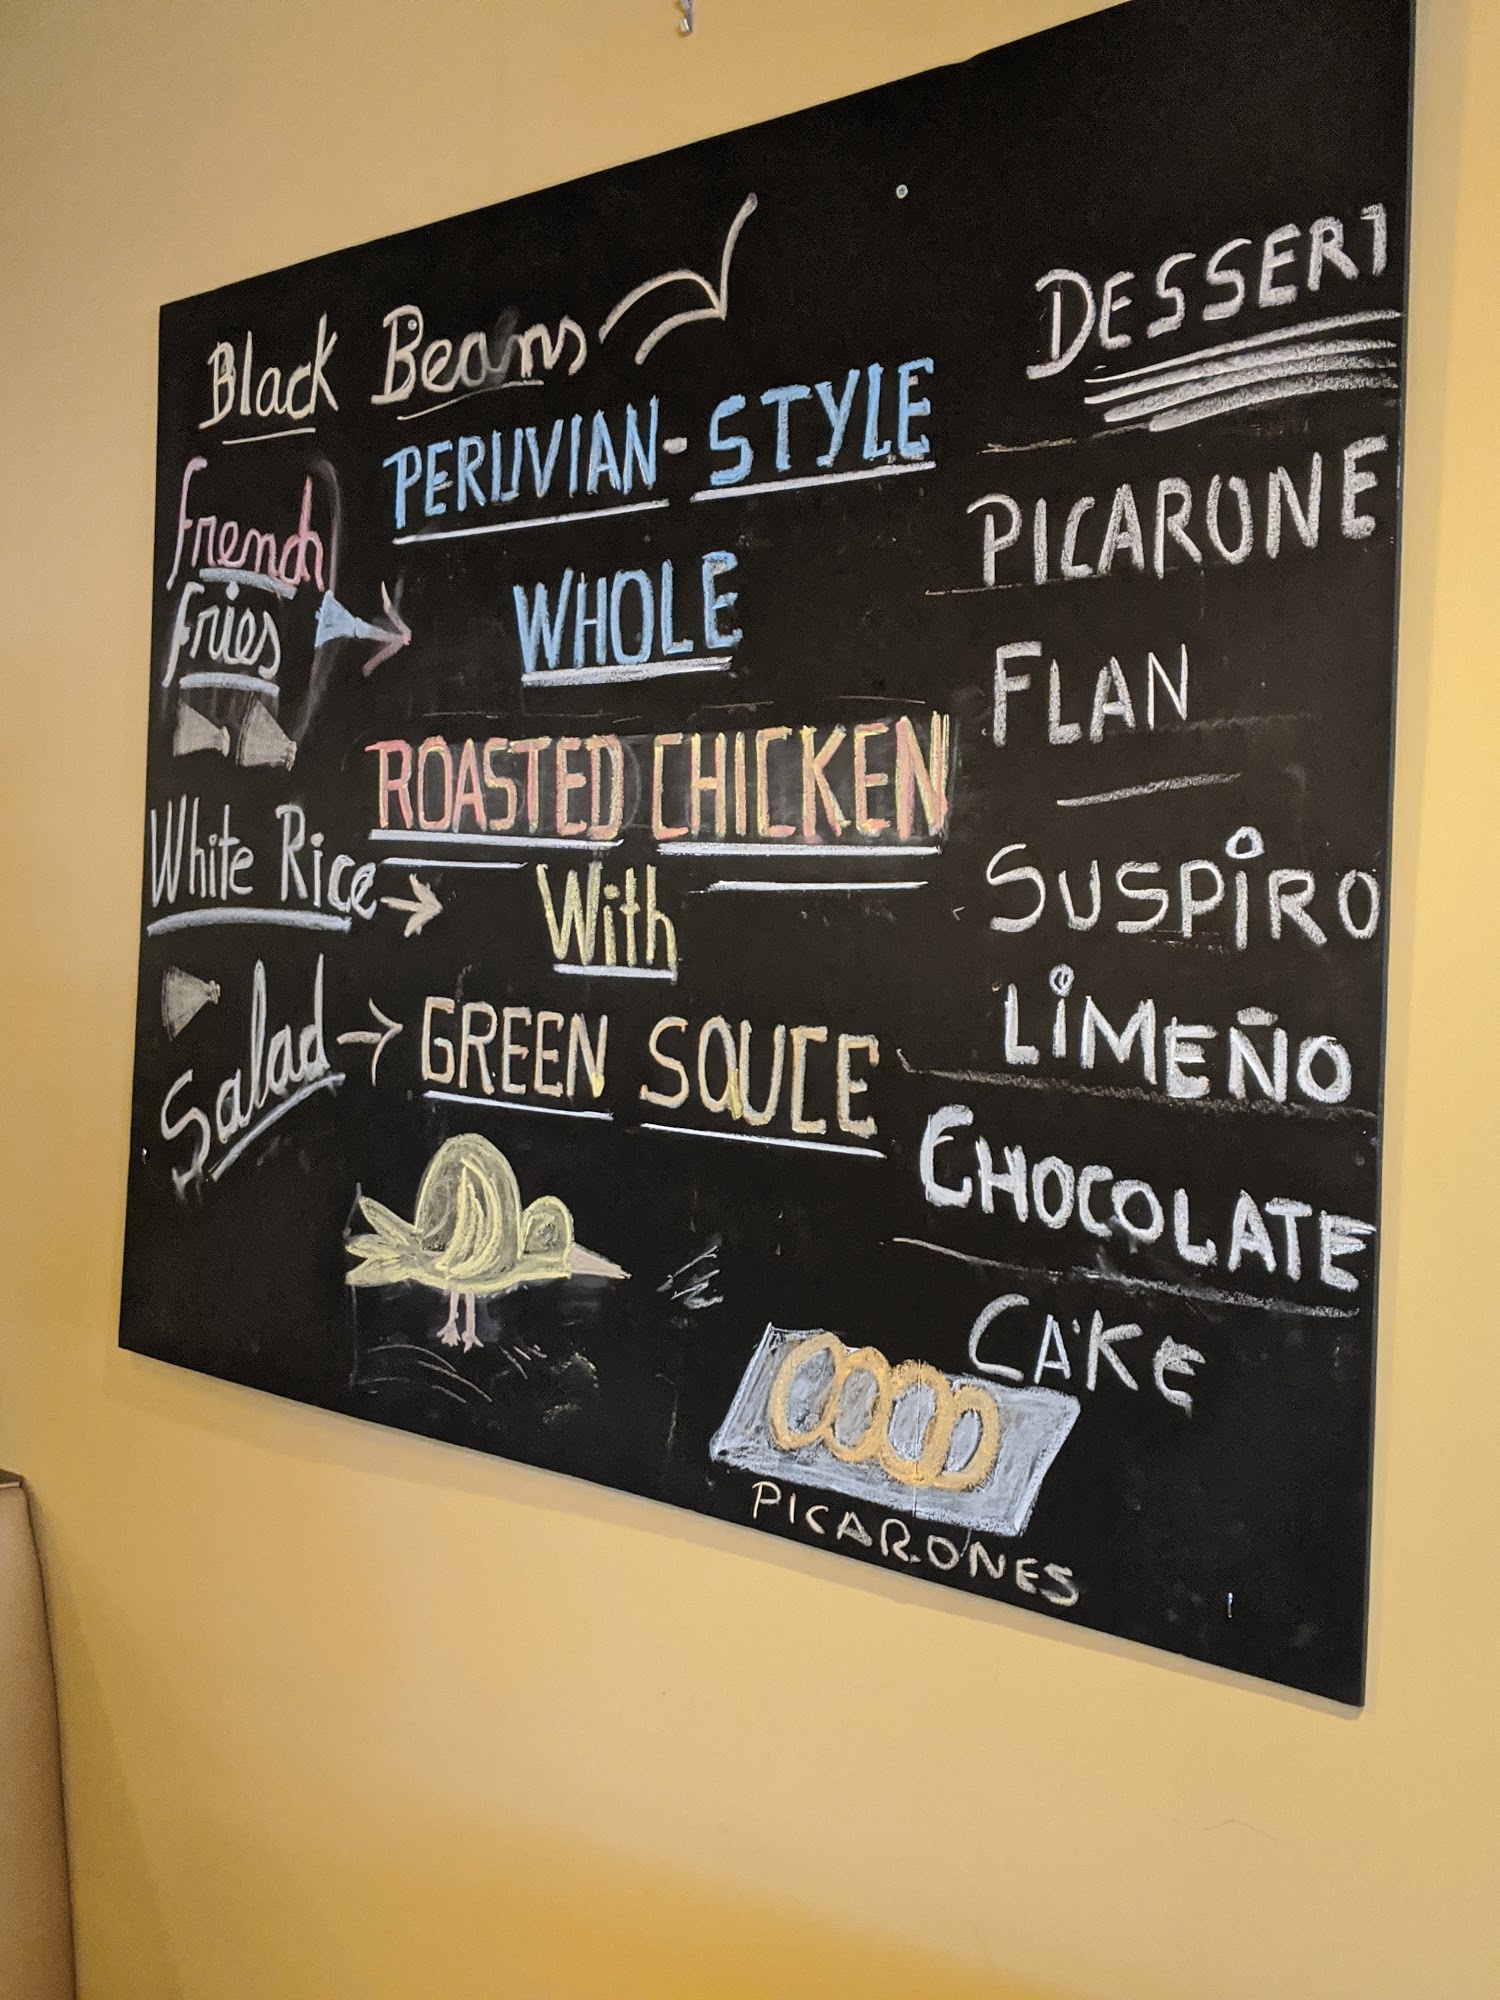 Black Beans
French
Fries
White Rice
Salad
PERUVIAN-STYLE
WHOLE
ROASTED CHICKEN
With
GREEN SAUCE
DESSERT
PICARONE
FLAN
SUSPIRO
LIMEÑO
CHOCOLATE
CAKE
PICARONES